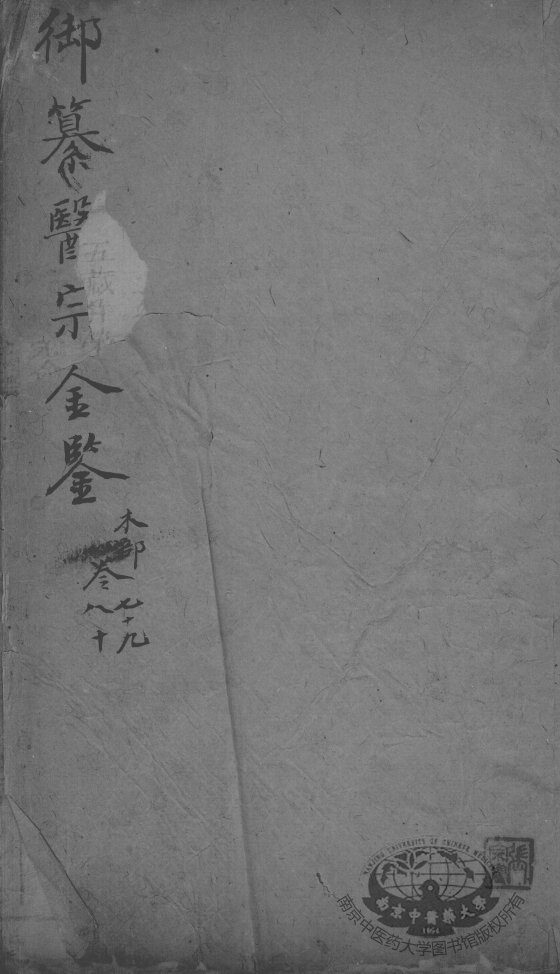 御纂醫宗金鑒
木部
卷七十九
八十
五藏
NANJING UNIVERSITY OF CHINESE MEDICINE
南京中醫藥大學
1954
南京中医药大学图书馆版权所有